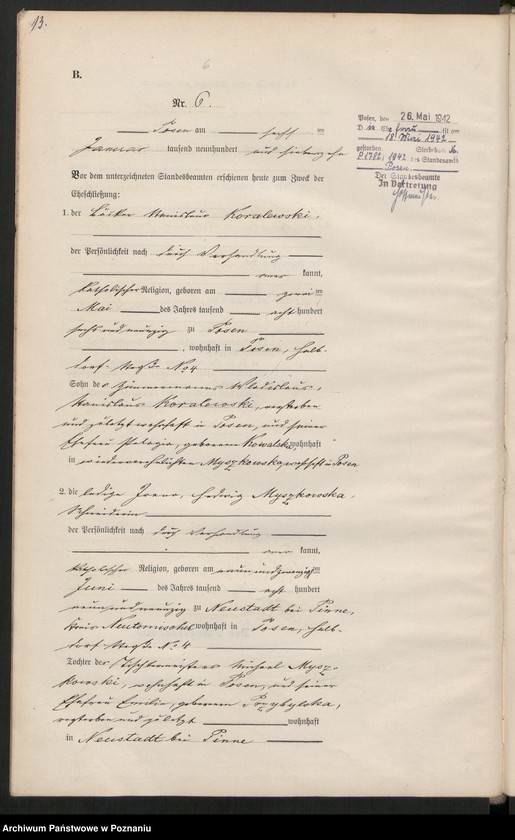 13.
6
B.
Nr. 6.
Posen, den 26. Mai 1942
D ie Ehefrau ist am
18. Mai 1942
gestorben Sterbebuch
1942 des Standesamts
Posen
Der Standesbeamte
In Vertretung
Posen am sechsten
Januar tausend neunhundert und siebzehn
Vor dem unterzeichneten Standesbeamten erschienen heute zum Zweck der
Eheschließung:
1. der Bäcker Stanislaus Koralewski,
der Persönlichkeit nach durch Verhandlung
kannt,
katholischer Religion, geboren am zweiten
Mai des Jahres tausend acht hundert
sechsundneunzig zu Posen
, wohnhaft in Posen, Halb-
dorf-Straße No 4
Sohn des Zimmermanns Wladislaus,
Stanislaus Koralewski, verstorben
und zuletzt wohnhaft in Posen, und seiner
Ehefrau Pelagia, geborenen Kowalska, wohnhaft
in wiederverehelichten Myszkowska wohnhaft in Posen
2. die ledige Joana, Hedwig Myszkowska,
Schneiderin
der Persönlichkeit nach durch Verhandlung
kannt,
katholischer Religion, geboren am neunundzwanzigsten
Juni des Jahres tausend acht hundert
neunundneunzig zu Neustadt bei Pinne,
Kreis Neutomischel wohnhaft in Posen, Halb-
dorf Straße No 4
Tochter des Tischlermeisters Michael Mysz-
kowski, wohnhaft in Posen, und seiner
Ehefrau Emilie, geborenen Przybylska,
verstorben und zuletzt wohnhaft
in Neustadt bei Pinne
Archiwum Państwowe w Poznaniu